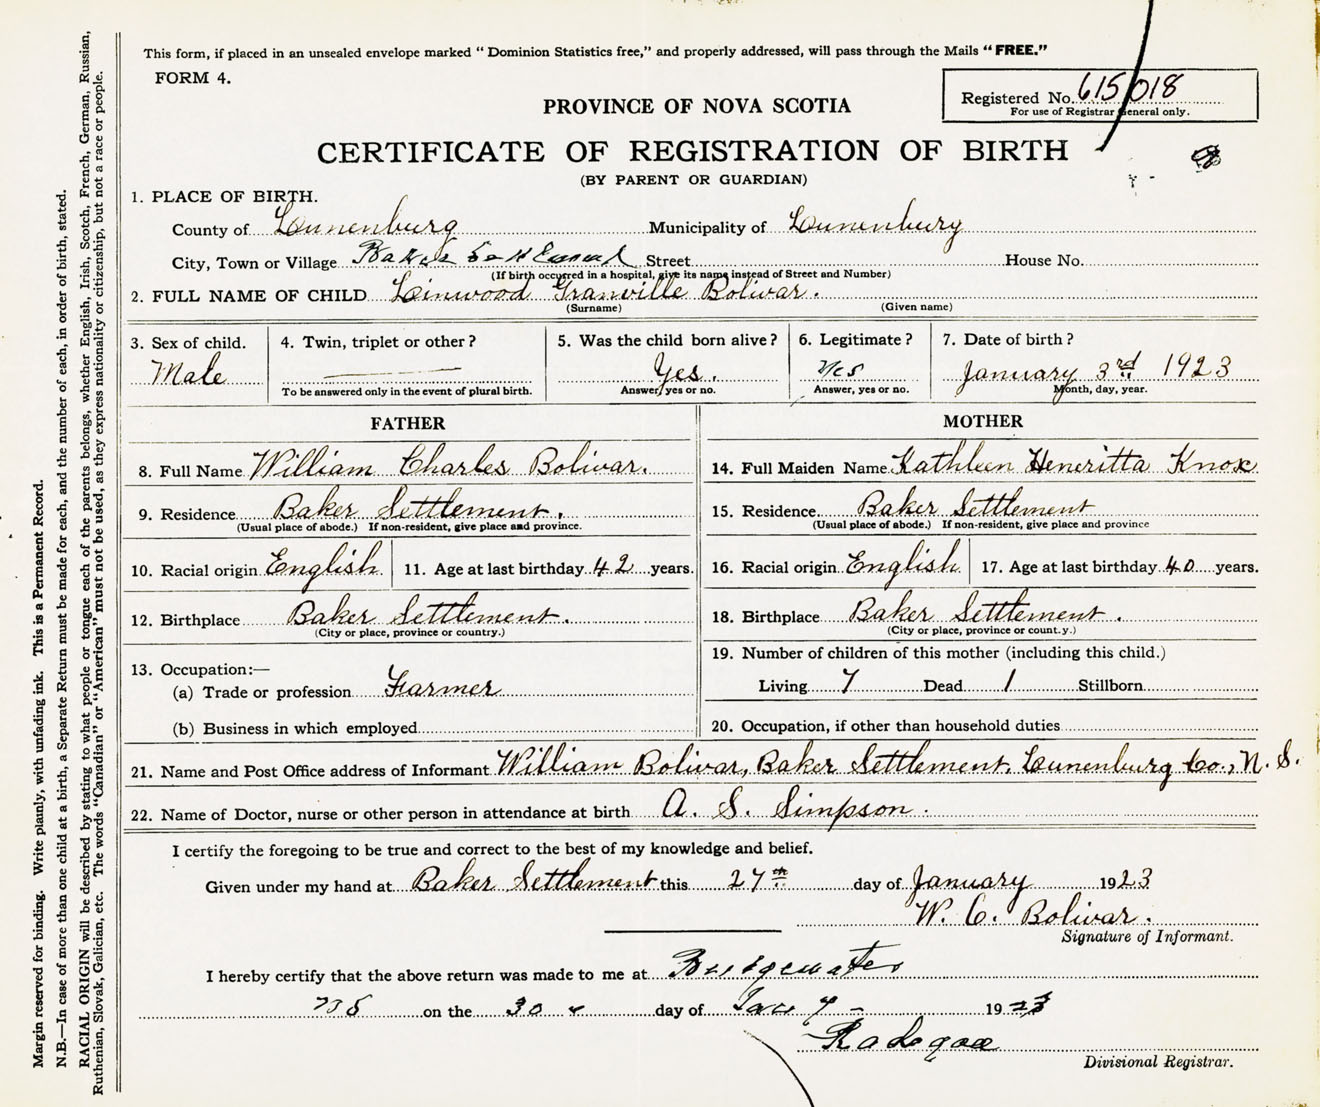 This form, if placed in an unsealed envelope marked "Dominion Statistics free," and properly addressed, will pass through the Mails "FREE."
FORM 4.
Registered No. 615018
For use of Registrar General only.
PROVINCE OF NOVA SCOTIA
CERTIFICATE OF REGISTRATION OF BIRTH
(BY PARENT OR GUARDIAN)
1. PLACE OF BIRTH.
County of Lunenburg Municipality of Lunenburg
City, Town or Village Baker Settlement Street House No.
(If birth occurred in a hospital, give its name instead of Street and Number)
2. FULL NAME OF CHILD Linwood Granville Bolivar.
(Surname) (Given name)
3. Sex of child. 4. Twin, triplet or other? 5. Was the child born alive? 6. Legitimate? 7. Date of birth?
Male Yes. Yes January 3rd 1923
To be answered only in the event of plural birth. Answer, yes or no. Answer, yes or no. Month, day, year.
FATHER MOTHER
8. Full Name William Charles Bolivar. 14. Full Maiden Name Kathleen Heneritta Knox
9. Residence Baker Settlement. 15. Residence Baker Settlement
(Usual place of abode.) If non-resident, give place and province. (Usual place of abode.) If non-resident, give place and province
10. Racial origin English 11. Age at last birthday 42 years. 16. Racial origin English 17. Age at last birthday 40 years.
12. Birthplace Baker Settlement. 18. Birthplace Baker Settlement.
(City or place, province or country.) (City or place, province or count.y.)
13. Occupation:— 19. Number of children of this mother (including this child.)
(a) Trade or profession Farmer Living 7 Dead 1 Stillborn
(b) Business in which employed 20. Occupation, if other than household duties
21. Name and Post Office address of Informant William Bolivar, Baker Settlement, Lunenburg Co., N. S.
22. Name of Doctor, nurse or other person in attendance at birth A. S. Simpson.
I certify the foregoing to be true and correct to the best of my knowledge and belief.
Given under my hand at Baker Settlement this 27th day of January 1923
W. C. Bolivar.
Signature of Informant.
I hereby certify that the above return was made to me at Bridgewater
on the 30 day of Jany 1923
Divisional Registrar.
Margin reserved for binding. Write plaunly, with unfading ink. This is a Permanent Record.
N.B.—In case of more than one child at a birth, a Separate Return must be made for each, and the number of each, in order of birth, stated.
RACIAL ORIGIN will be described by stating to what people or tongue each of the parents belongs, whether English, Irish, Scotch, French, German, Russian,
Ruthenian, Slovak, Galician, etc. The words "Canadian" or "American" must not be used, as they express nationality or citizenship, but not a race or people.